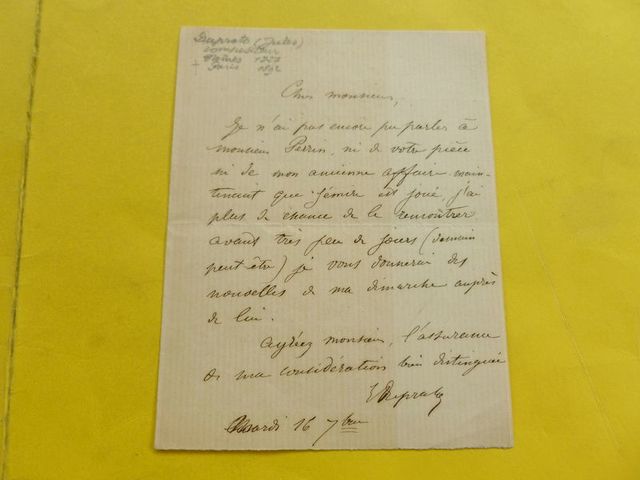 Duprato (Jules)
compositeur
Nîmes 1827
+ Paris 1892
Cher monsieur,
Je n'ai pas encore pu parler à
monsieur Perrin, ni de votre pièce
ni de mon ancienne affaire main-
tenant que est joué, j'ai
plus de chance de le rencontrer
avant très peu de jours (demain
peut être) je vous donnerai des
nouvelles de ma démarche auprès
de lui.
Agréez monsieur, l'assurance
de ma considération bien distinguée
J Duprato
Mardi 16 7bre